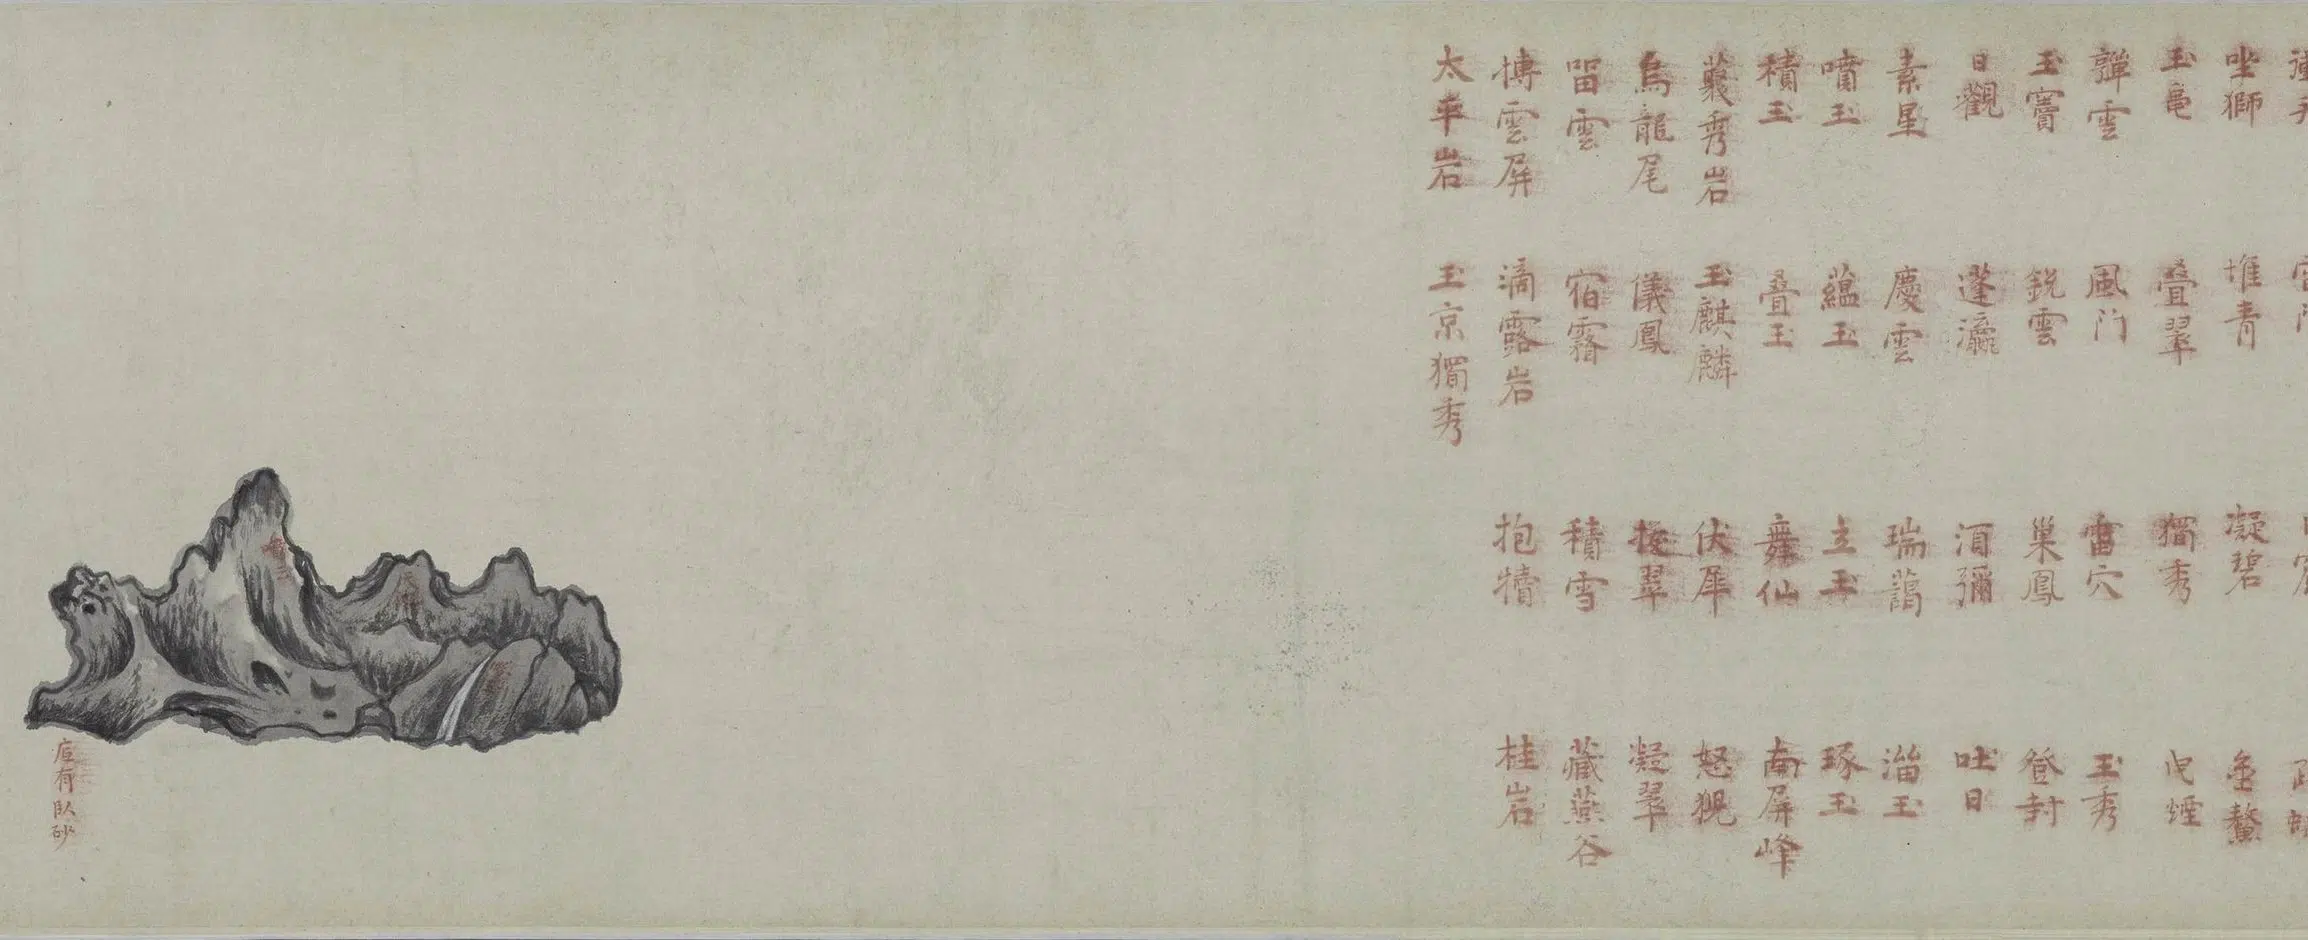 坐獅 堆青 凝碧 金鰲
玉龜 疊翠 獨秀 煙
雲 風门 雷穴 玉秀
玉竇 銳雲 巢鳳 封
日觀 蓬瀛 湏彌 吐日
素星 慶雲 瑞藹 溜玉
噴玉 蘊玉 立玉 琢玉
積玉 疊玉 舞仙 南屏峰
叢秀岩 玉麒麟 伏犀 怒猊
烏龍尾 儀鳳 接翠 凝翠
留雲 宿霧 積雪 藏燕谷
搏雲屏 滴露岩 抱犢 桂岩
太平岩 玉京獨秀
有臥砂